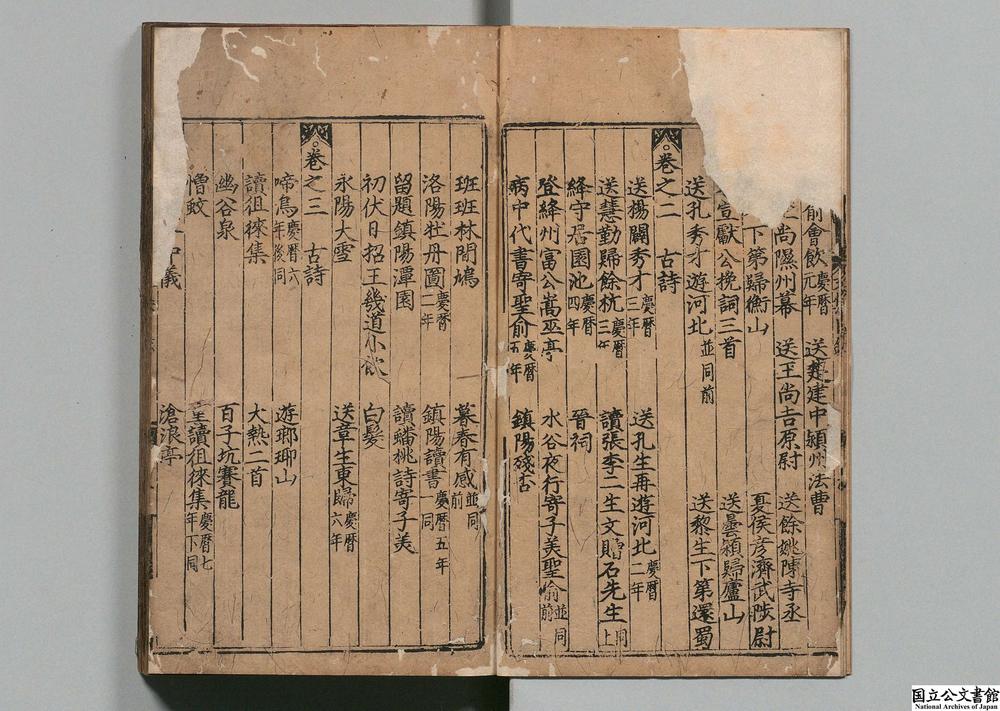 俞會飲慶曆元年 送楚建中潁州法曹
尚隰州幕 送王尚吉原尉 送餘姚陳寺丞
下第歸衡山 憂侯彦濟武陟尉
宣獻公挽詞三首 送曇潁歸廬山
送孔秀才遊河北並同前 送黎生下第還蜀
卷之二 古詩
送楊闢秀才慶曆三年 送孔生再遊河北慶曆二年
送慧勤歸餘杭慶曆三年 讀張李二生文贈石先生同上
絳守居園池慶曆四年 晉祠
登絳州富公嵩巫亭 水谷夜行寄子美聖俞並同前
病中代書寄聖俞慶曆五年 鎮陽殘杏
班班林間鳩 暮春有感並同前
洛陽牡丹圖慶曆二年 鎮陽讀書慶曆五年一同
留題鎮陽潭園 讀蟠桃詩寄子美
初伏日招王幾道小飲 白髮
永陽大雪 送章生東歸慶曆六年
卷之三 古詩
啼鳥慶曆六年後同 遊瑯琊山
讀徂徠集 大熱二首
幽谷泉 百子坑賽龍
憎蚊 重讀徂徠集慶曆七年下同
議 滄浪亭
国立公文書館
National Archives of Japan